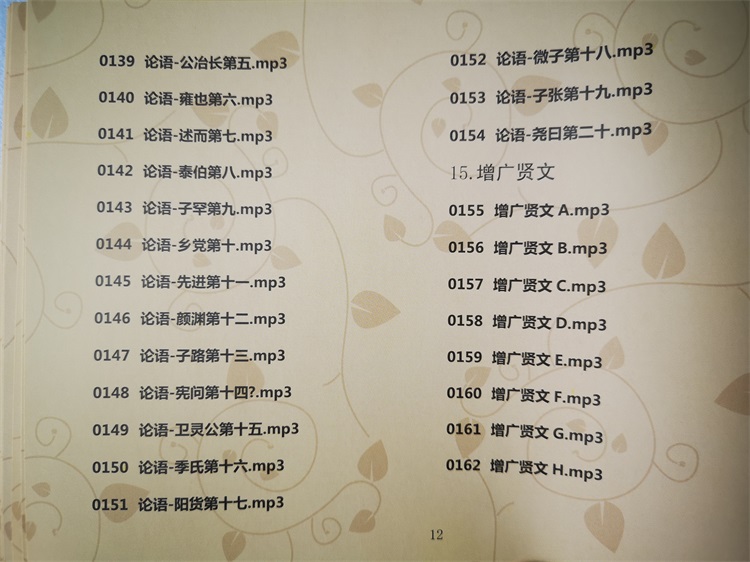 0139 论语-公冶长第五.mp3
0140 论语-雍也第六.mp3
0141 论语-述而第七.mp3
0142 论语-泰伯第八.mp3
0143 论语-子罕第九.mp3
0144 论语-乡党第十.mp3
0145 论语-先进第十一.mp3
0146 论语-颜渊第十二.mp3
0147 论语-子路第十三.mp3
0148 论语-宪问第十四?.mp3
0149 论语-卫灵公第十五.mp3
0150 论语-季氏第十六.mp3
0151 论语-阳货第十七.mp3
0152 论语-微子第十八.mp3
0153 论语-子张第十九.mp3
0154 论语-尧曰第二十.mp3
15.增广贤文
0155 增广贤文 A.mp3
0156 增广贤文 B.mp3
0157 增广贤文 C.mp3
0158 增广贤文 D.mp3
0159 增广贤文 E.mp3
0160 增广贤文 F.mp3
0161 增广贤文 G.mp3
0162 增广贤文 H.mp3
12